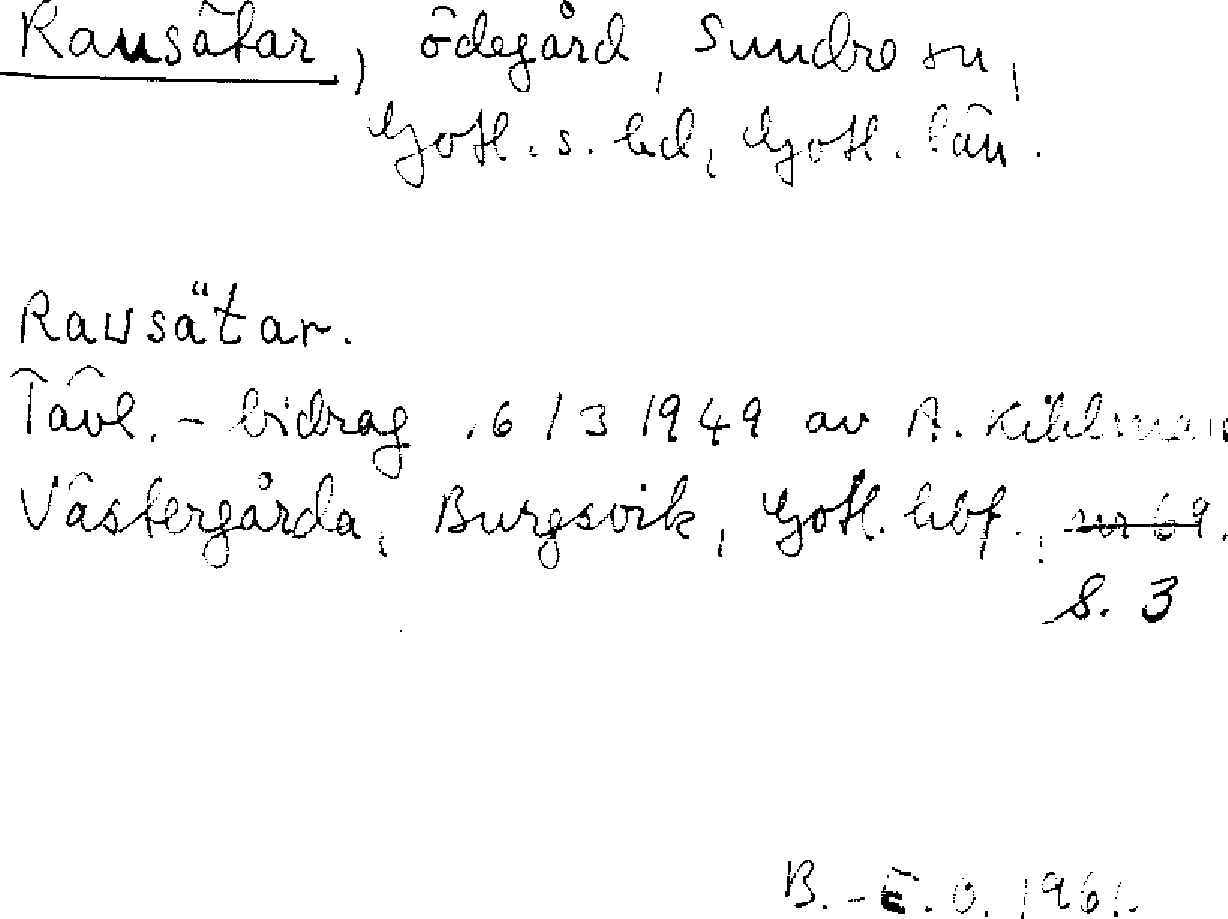 Rausätar, ödegård, Sundre sn,
Gotl. s. hd, Gotl. län.
Rausätar.
Tävl.-bidrag 6/3 1949 av A. Kihlman
Västergårda, Burgsvik, Gotl. hbf., nr 69.
S. 3
B.-E. O. 1961.